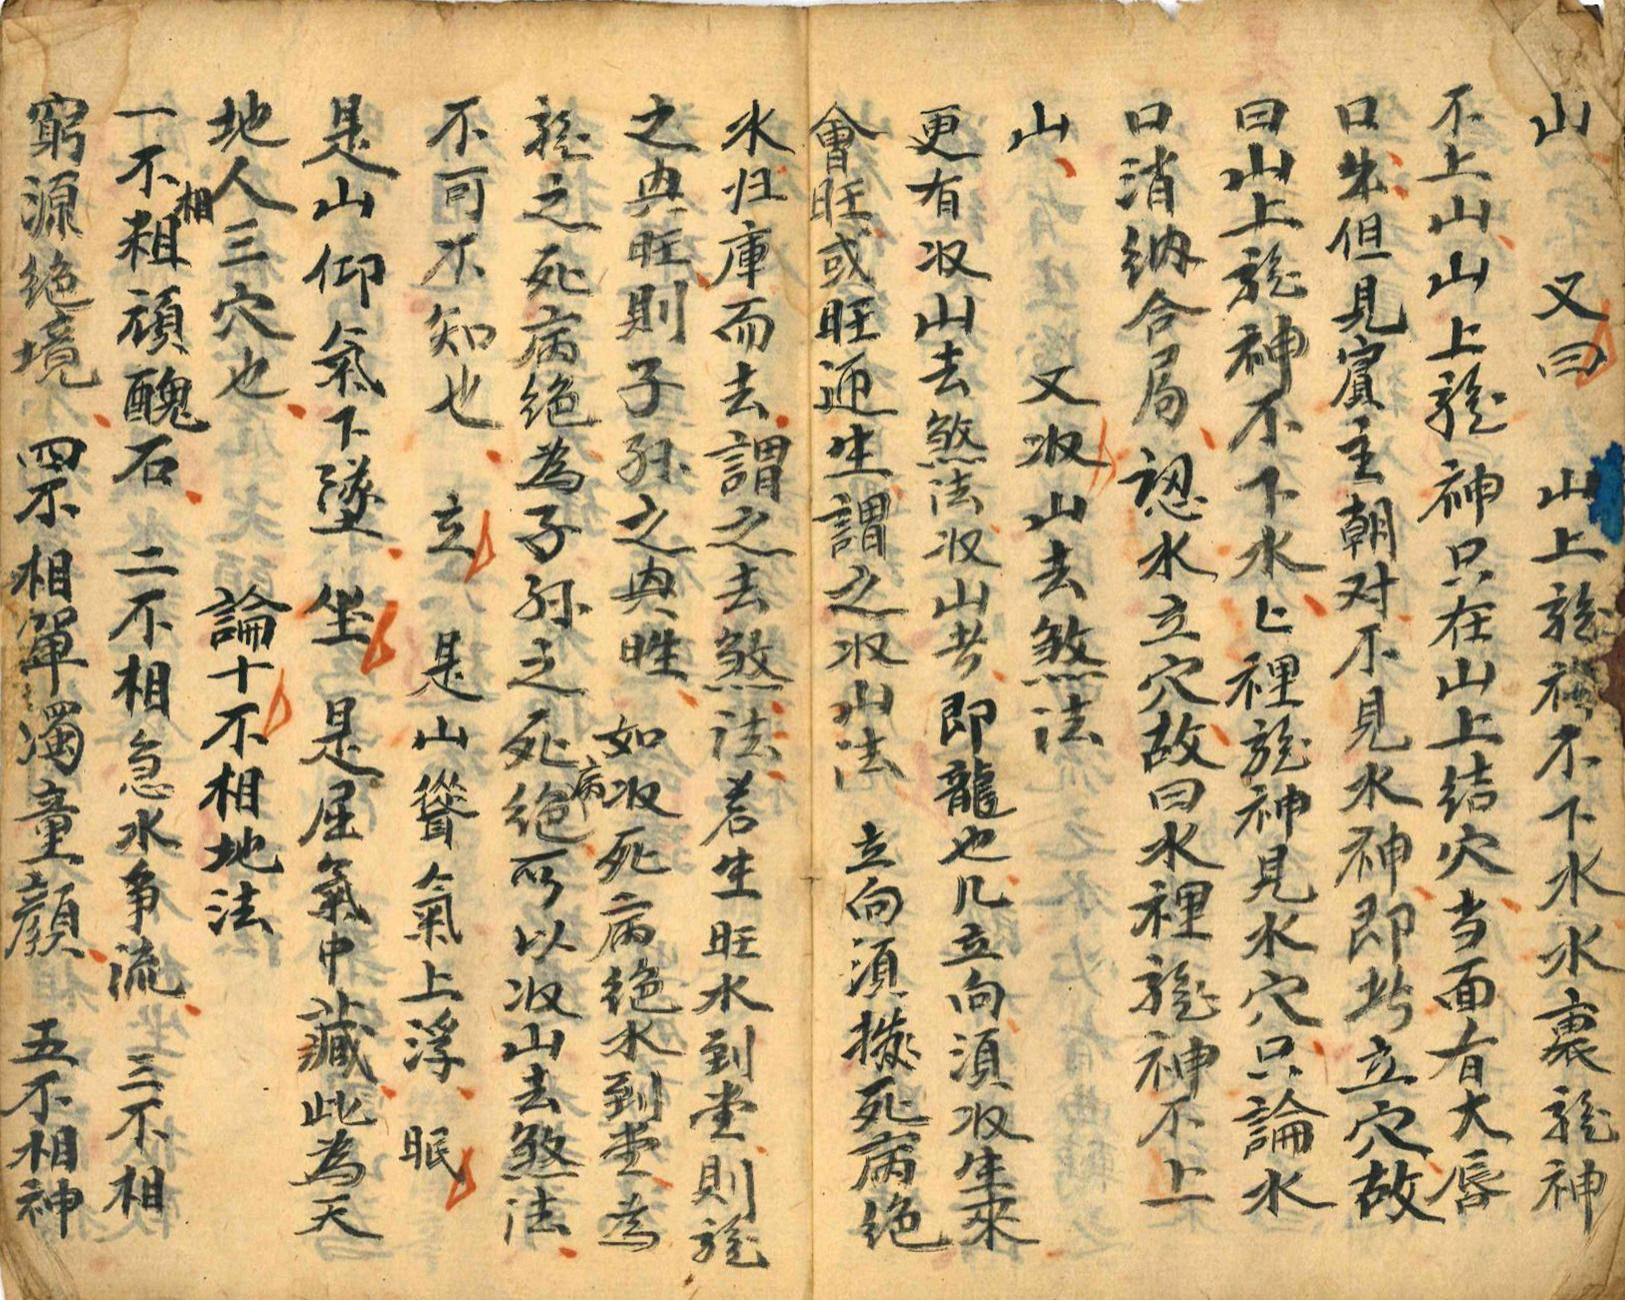 山　又曰　山上龍神不下水水裏龍神
不上山山上龍神只在山上結穴当面有大唇
口朱但見賓主朝对不見水神即此立穴故
曰山上龍神不下水匕裡龍神見水穴只論水
口消納合局認水立穴故曰水裡龍神不上
山　又收山去煞法
更有收山去煞法收山者即龍也凡立向須收生來
會旺或旺迊生謂之收山法　立向須撥死病絶
水归庫而去謂之去煞法若生旺水到堂則龍
之典旺則子孫之典胜　如收死病絶水到堂為
龍之死病絶為子孫之死病絶所以收山去煞法
不可不知也　立　是山聳氣上浮　眠
是山仰氣下墜　坐　是屈氣中藏此為天
地人三穴也　論十不相地法
一不相粗頑醜石　二不相急水争流　三不相
窮源絶境　四不相單濁童顔　五不相神